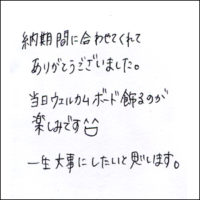 納期間に合わせてくれて
ありがとうございました。
当日ウェルカムボード飾るのが
楽しみです
一生大事にしたいと思います。